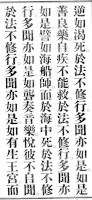 如渴死於法不修行多聞亦如是如是
善良藥自疾不能救於法不修行多聞亦
如是譬如海船師而於海中死於法不修
行多聞亦如是如聾奏音樂悅彼不自聞
於法不修行多聞亦如是如有生王宮而